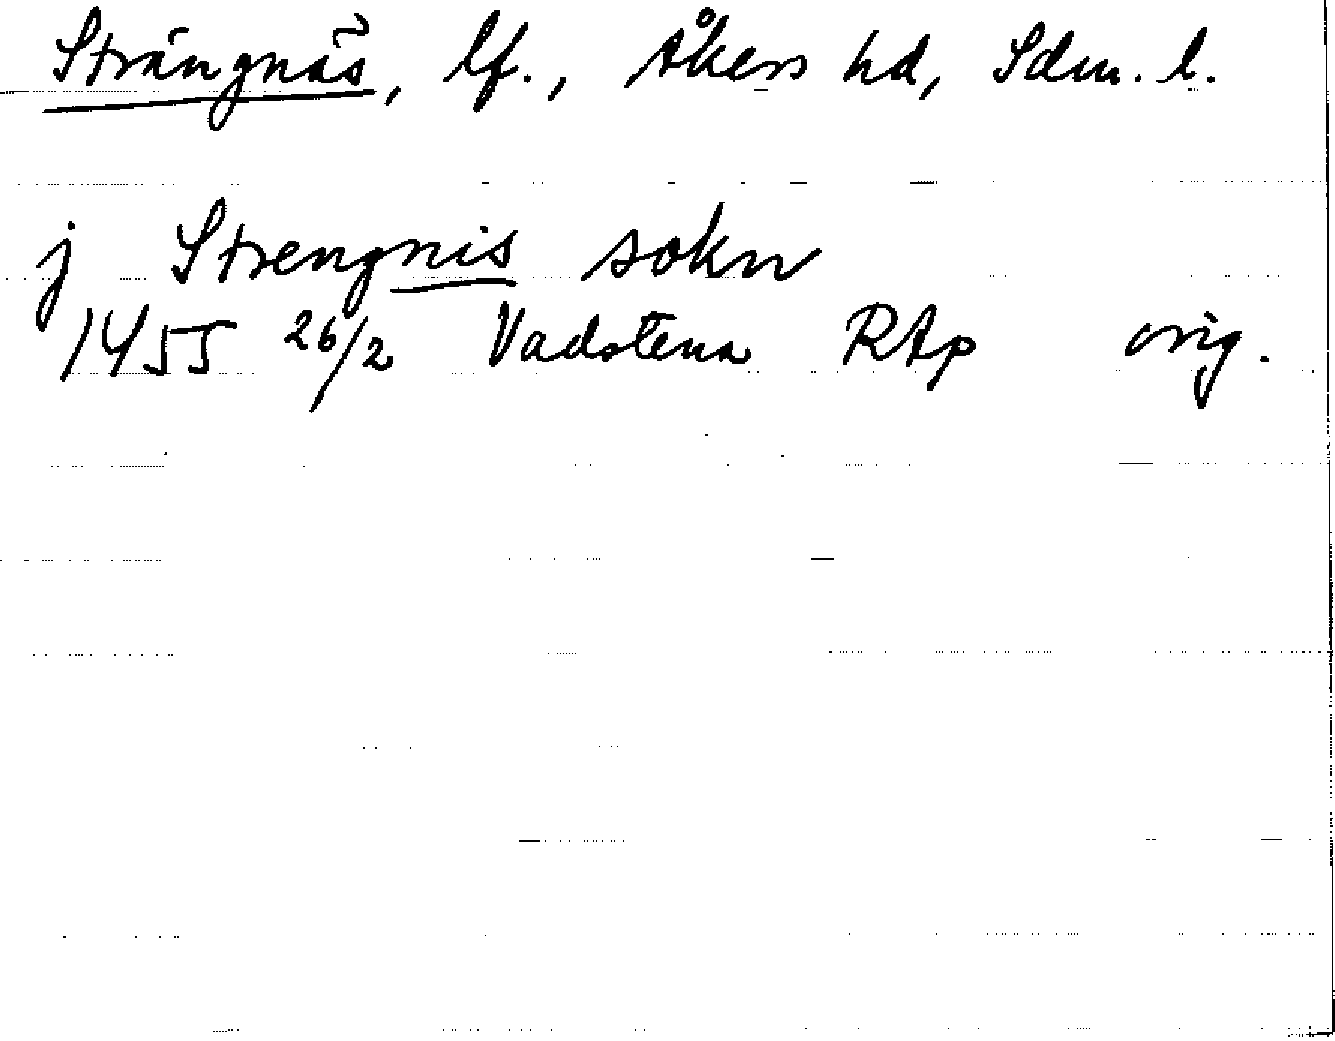 Strängnäs, lf., Åkers hd, Sdm. l.
j Strengnis sokn
1455 26/2 Vadstena RAp orig.